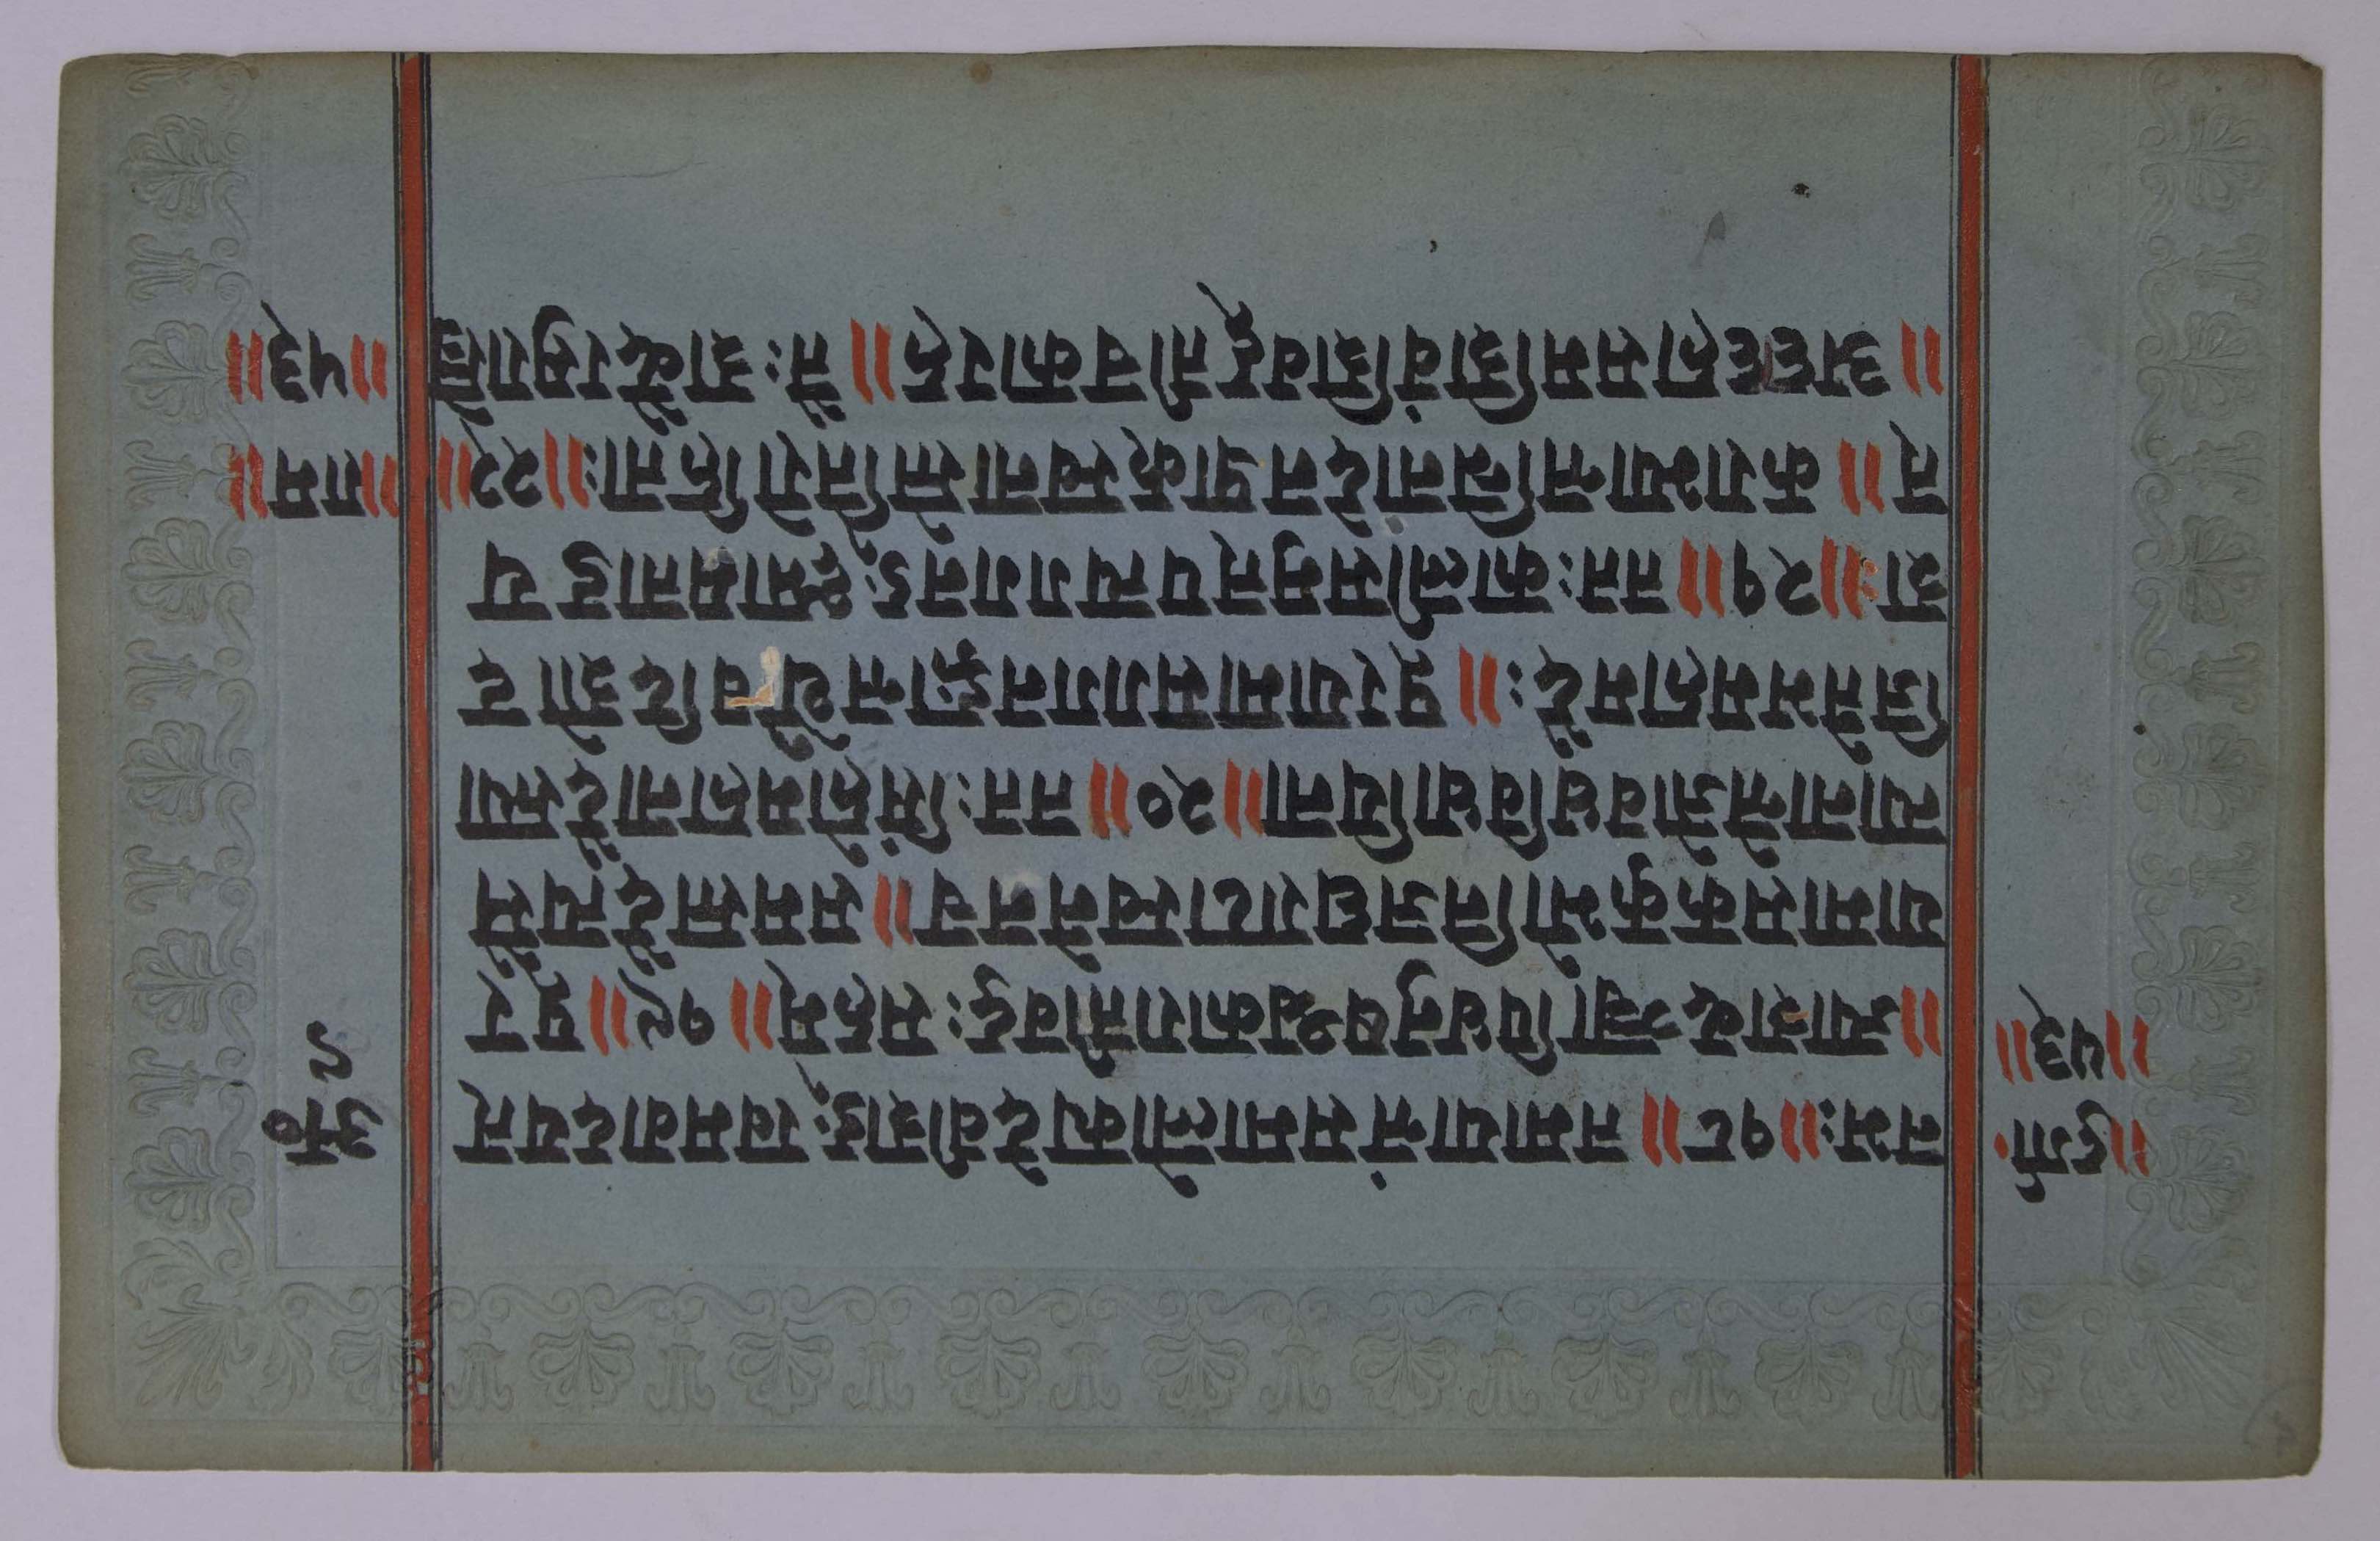 ॥दुर्गा॰
॥५३॥
नभः॥१८॥ तमायान्तंसमालोक्यदेवीशङ्खमवादयत्
॥ज्याशब्दञ्चापिधनुषश्चकारातीवदुःसहम्॥१९॥पूर
यामासककुभोनिजघण्टास्वनेनच॥समस्तदैत्यसै
न्यानान्तेजोवधविधायिना॥२०॥ततःसिंहोमहानादैस्त्या
जितेभमहामदैः॥पूरयामासगगनङ्गान्तथैवदिशोद
श॥२१॥ततःकालीसमुत्पत्यगगनङ्क्ष्मामताडय
त्॥कराभ्यान्तन्निनादेनप्राक्स्वनास्तेतिरोहिताः॥२२॥
॥अट्टाट्टहासमशिवंशिवदूतीचकारह॥तैःशब्दैरसुरास्त्रे
अ॰
९
॥राम॥
॥५३॥